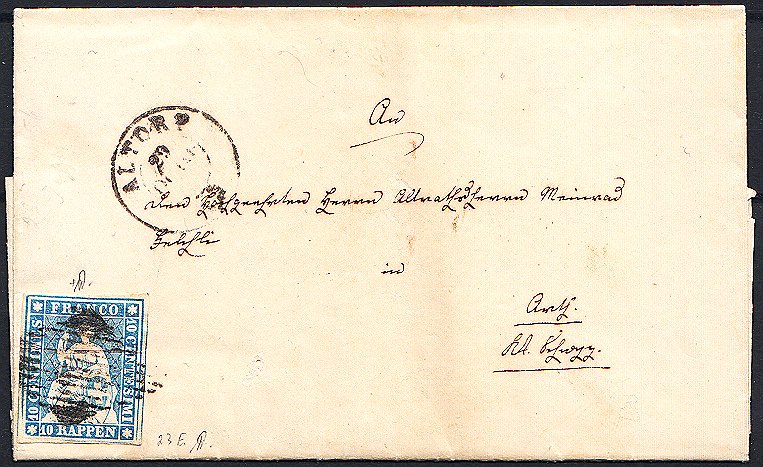 ALTDORF
29
An
den Hochgeehrten Herrn Altrathsherrn Meinrad
in
Arth.
Kt. Schwyz.
FRANCO
10 CENTIMES
10 CENTESIMI
10 RAPPEN
23 E.